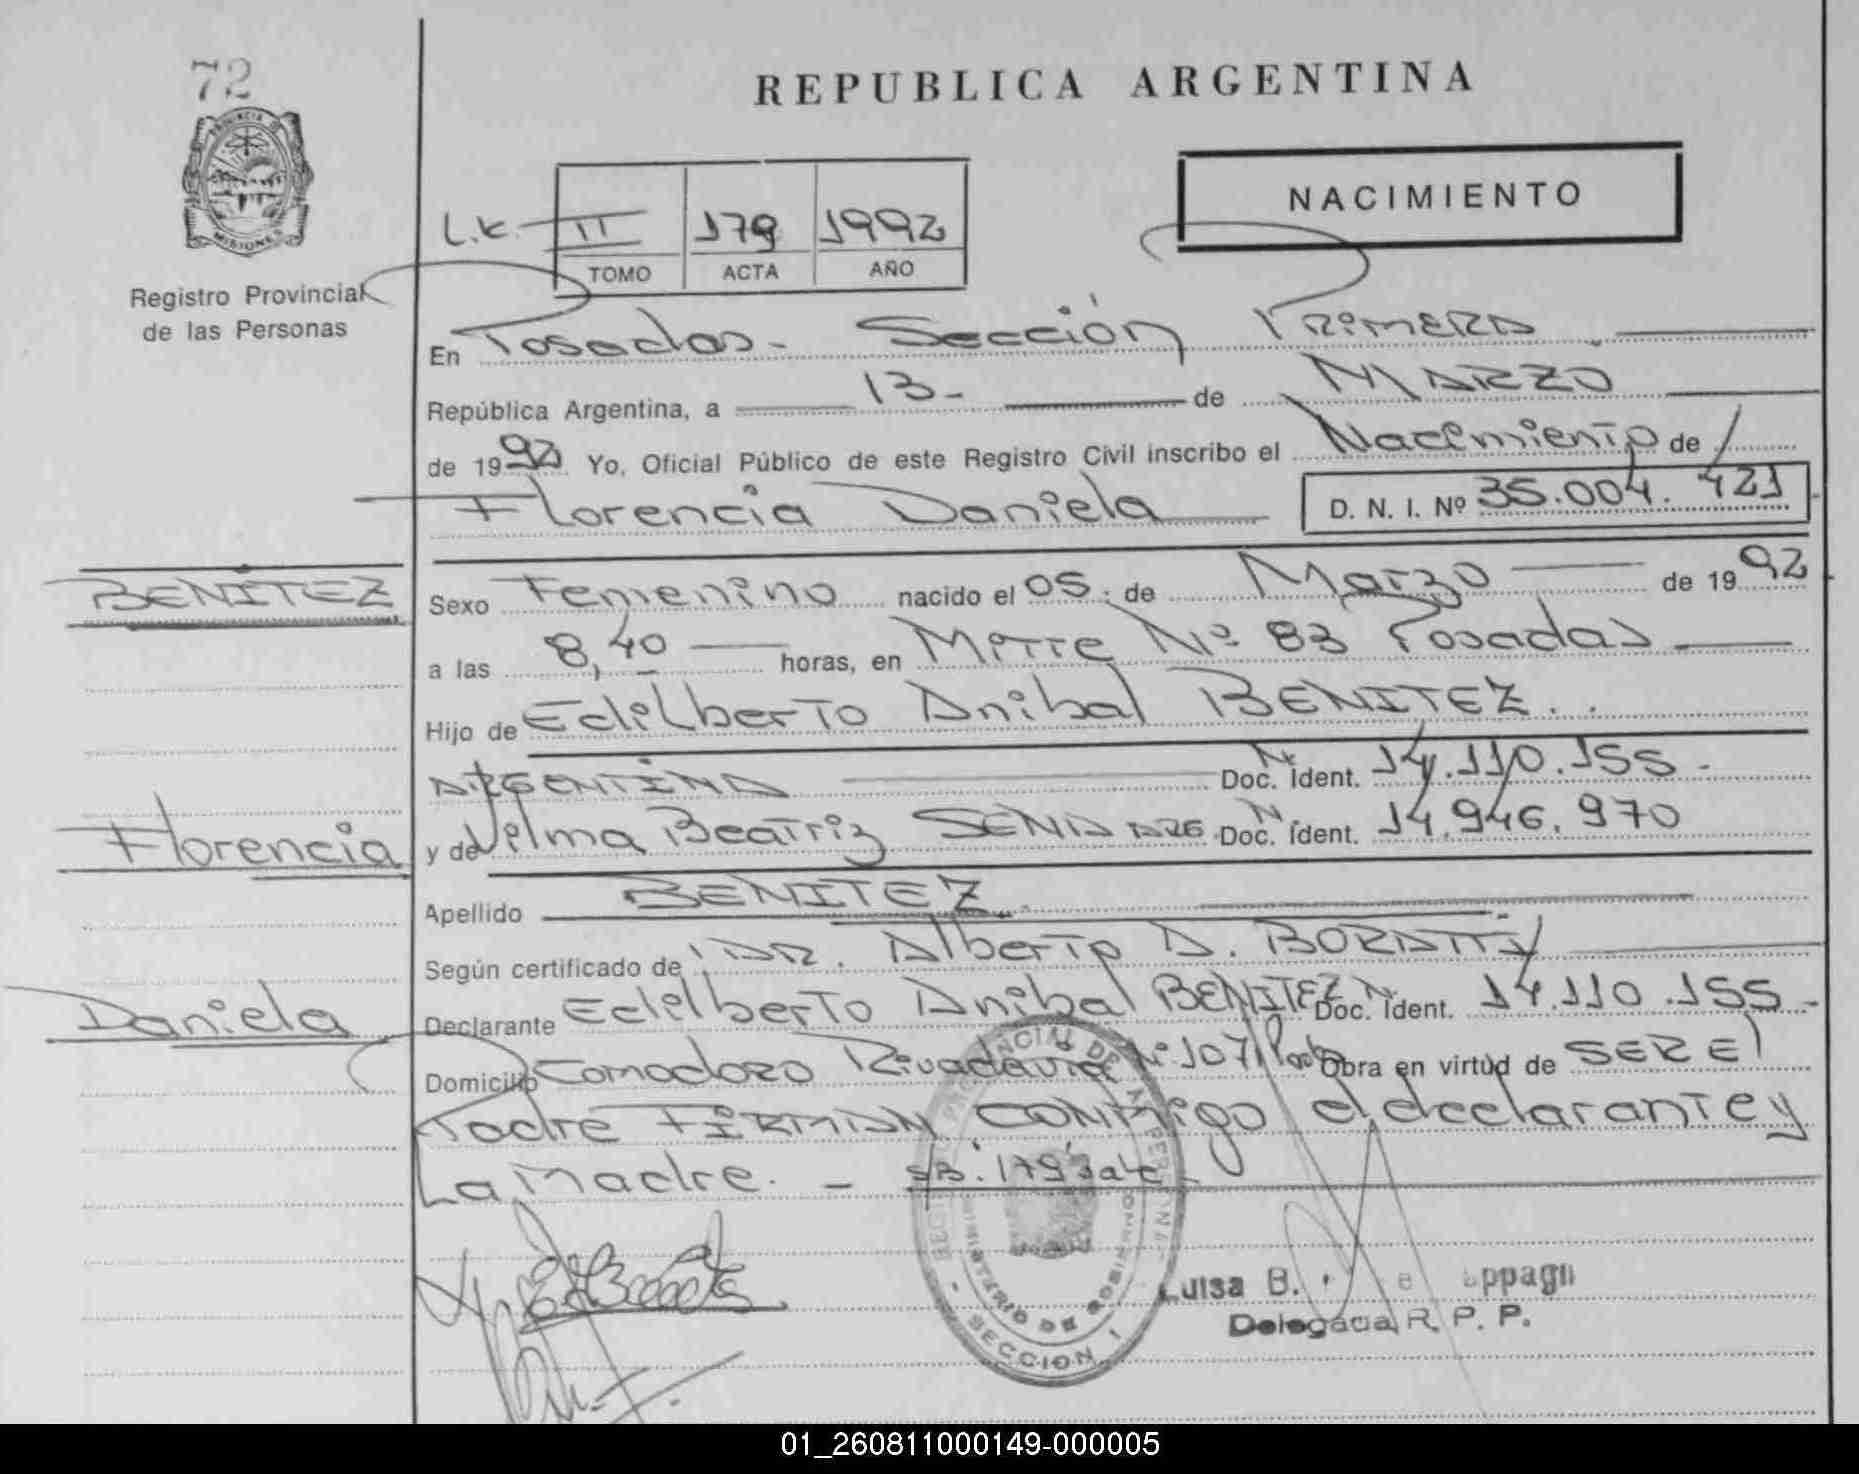 72
REPUBLICA ARGENTINA
PROVINCIA DE
MISIONES
Registro Provincial
de las Personas
NACIMIENTO
L.k. II 179 1992
TOMO ACTA AÑO
En Posadas. Sección Primera
República Argentina, a 13- de MARZO
de 1992 Yo, Oficial Público de este Registro Civil inscribo el Nacimiento de
Florencia Daniela D. N. I. Nº 35.004.421
BENITEZ
Sexo Femenino nacido el 05 de Marzo de 1992
a las 8,40 horas, en Mitre Nº 83 Posadas
Hijo de Edilberto Anibal BENITEZ.
ARGENTINA Doc. Ident. Nº 14.110.155-
Florencia
y de Velma Beatriz Doc. Ident. Nº 14.946.970
Apellido BENITEZ.
Según certificado de DR. Alberto D.
Daniela
Declarante Edilberto Anibal BENITEZ Doc. Ident. Nº 14.110.155-
Domicilio Comodoro Rivadavia Nº 107 Obra en virtud de SER El
Padre FIRMAN CONMigo el declarante y
La Madre. -
REGISTRO PROVINCIAL DE LAS PERSONAS
MINISTERIO DE GOBIERNO
SECCION 1
Luisa B.
Delegada R. P. P.
01_260811000149-000005